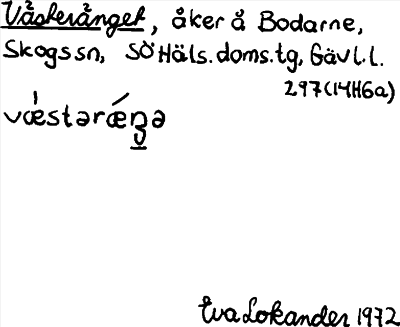 Västeränget, åker å Bodarne,
Skogs sn, SÖ Häls. doms.tg, Gävl.l.
297 (14H6a)
vǽstərǽŋə
Eva Lokander 1972